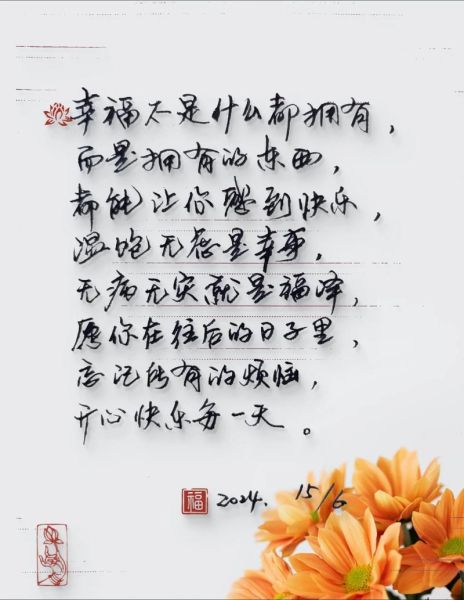 幸福不是什么都拥有，
而是拥有的东西，
都能让你感到快乐，
温饱无虑是幸事，
无病无灾就是福泽，
愿你在往后的日子里，
忘记所有的烦恼，
开心快乐每一天。
福 2024. 15/6